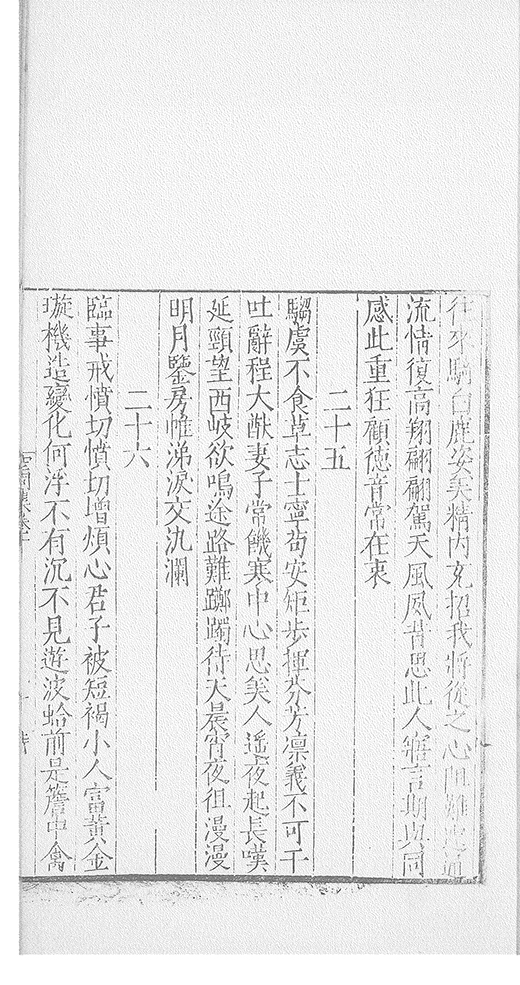 往來騎白鹿姿美精內充招我將從之心阻難與通
流情復高翔翩翩駕天風夙昔思此人寤言期與同
感此重狂顧德音常在衷
二十五
騶虞不食草志士寧苟安矩步揮芬芳凛義不可干
吐辭程大猷妻子常饑寒中心思美人遥夜起長嘆
延頸望西岐欲鳴途路難躑躅待天晨宵夜徂漫漫
明月鑒房帷涕淚交汍瀾
二十六
臨事戒憤切憤切增煩心君子被短褐小人富黃金
璇機造變化何浮不有沉不見遊波蛤前是簷中禽